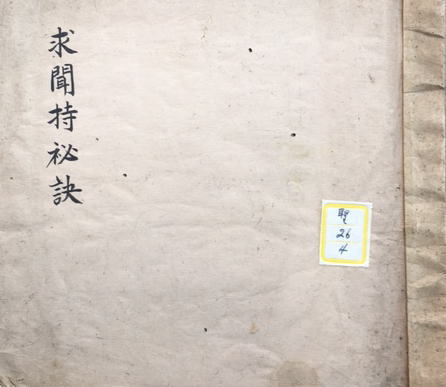 求聞持祕訣
聖
26
4